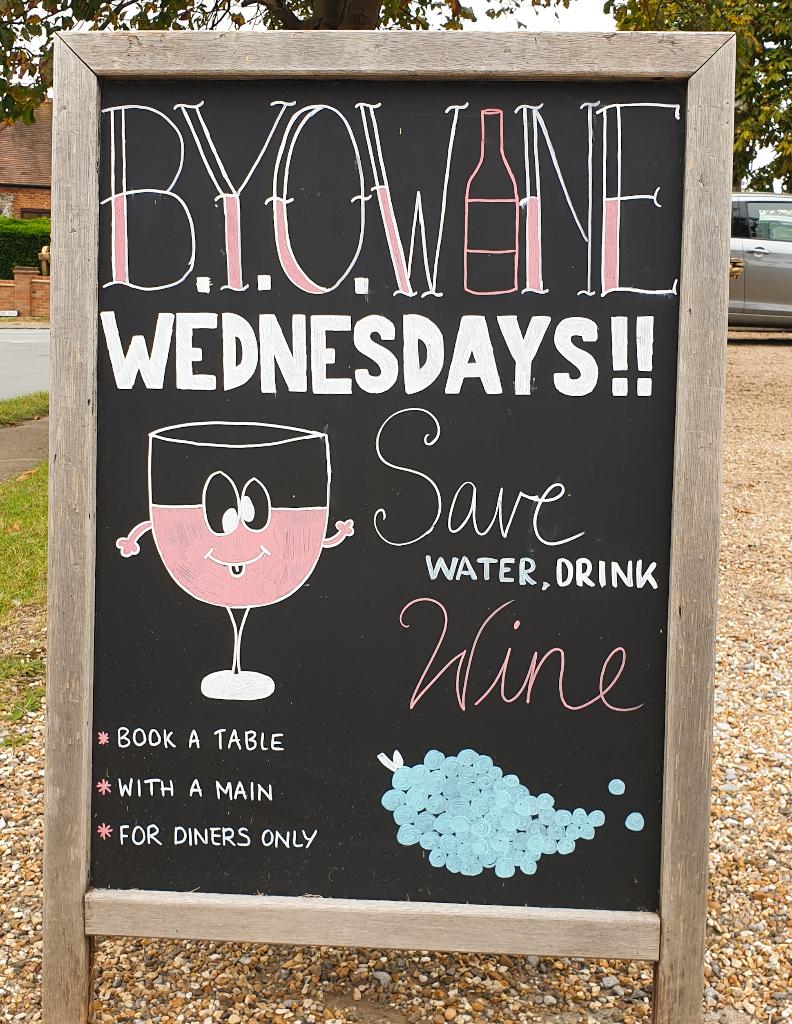 B.Y.O.WINE
WEDNESDAYS!!
Save
WATER, DRINK
Wine
* BOOK A TABLE
* WITH A MAIN
* FOR DINERS ONLY